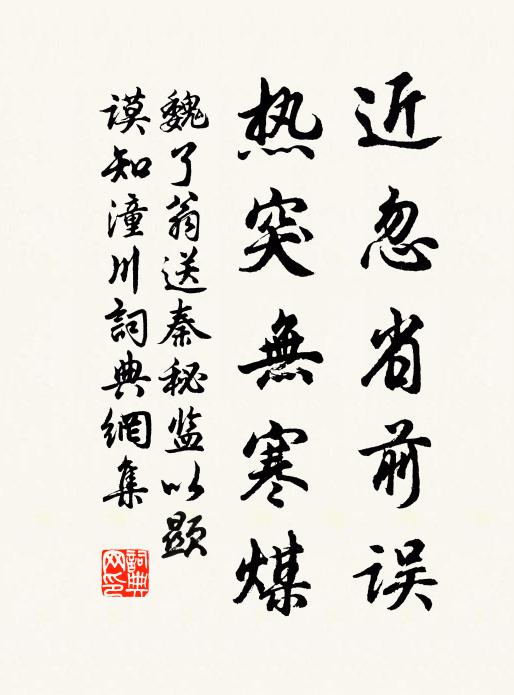 近忽省前误
热突無寒煤
魏了翁送秦秘监以显
谟知潼川詞典網集
詞典网印